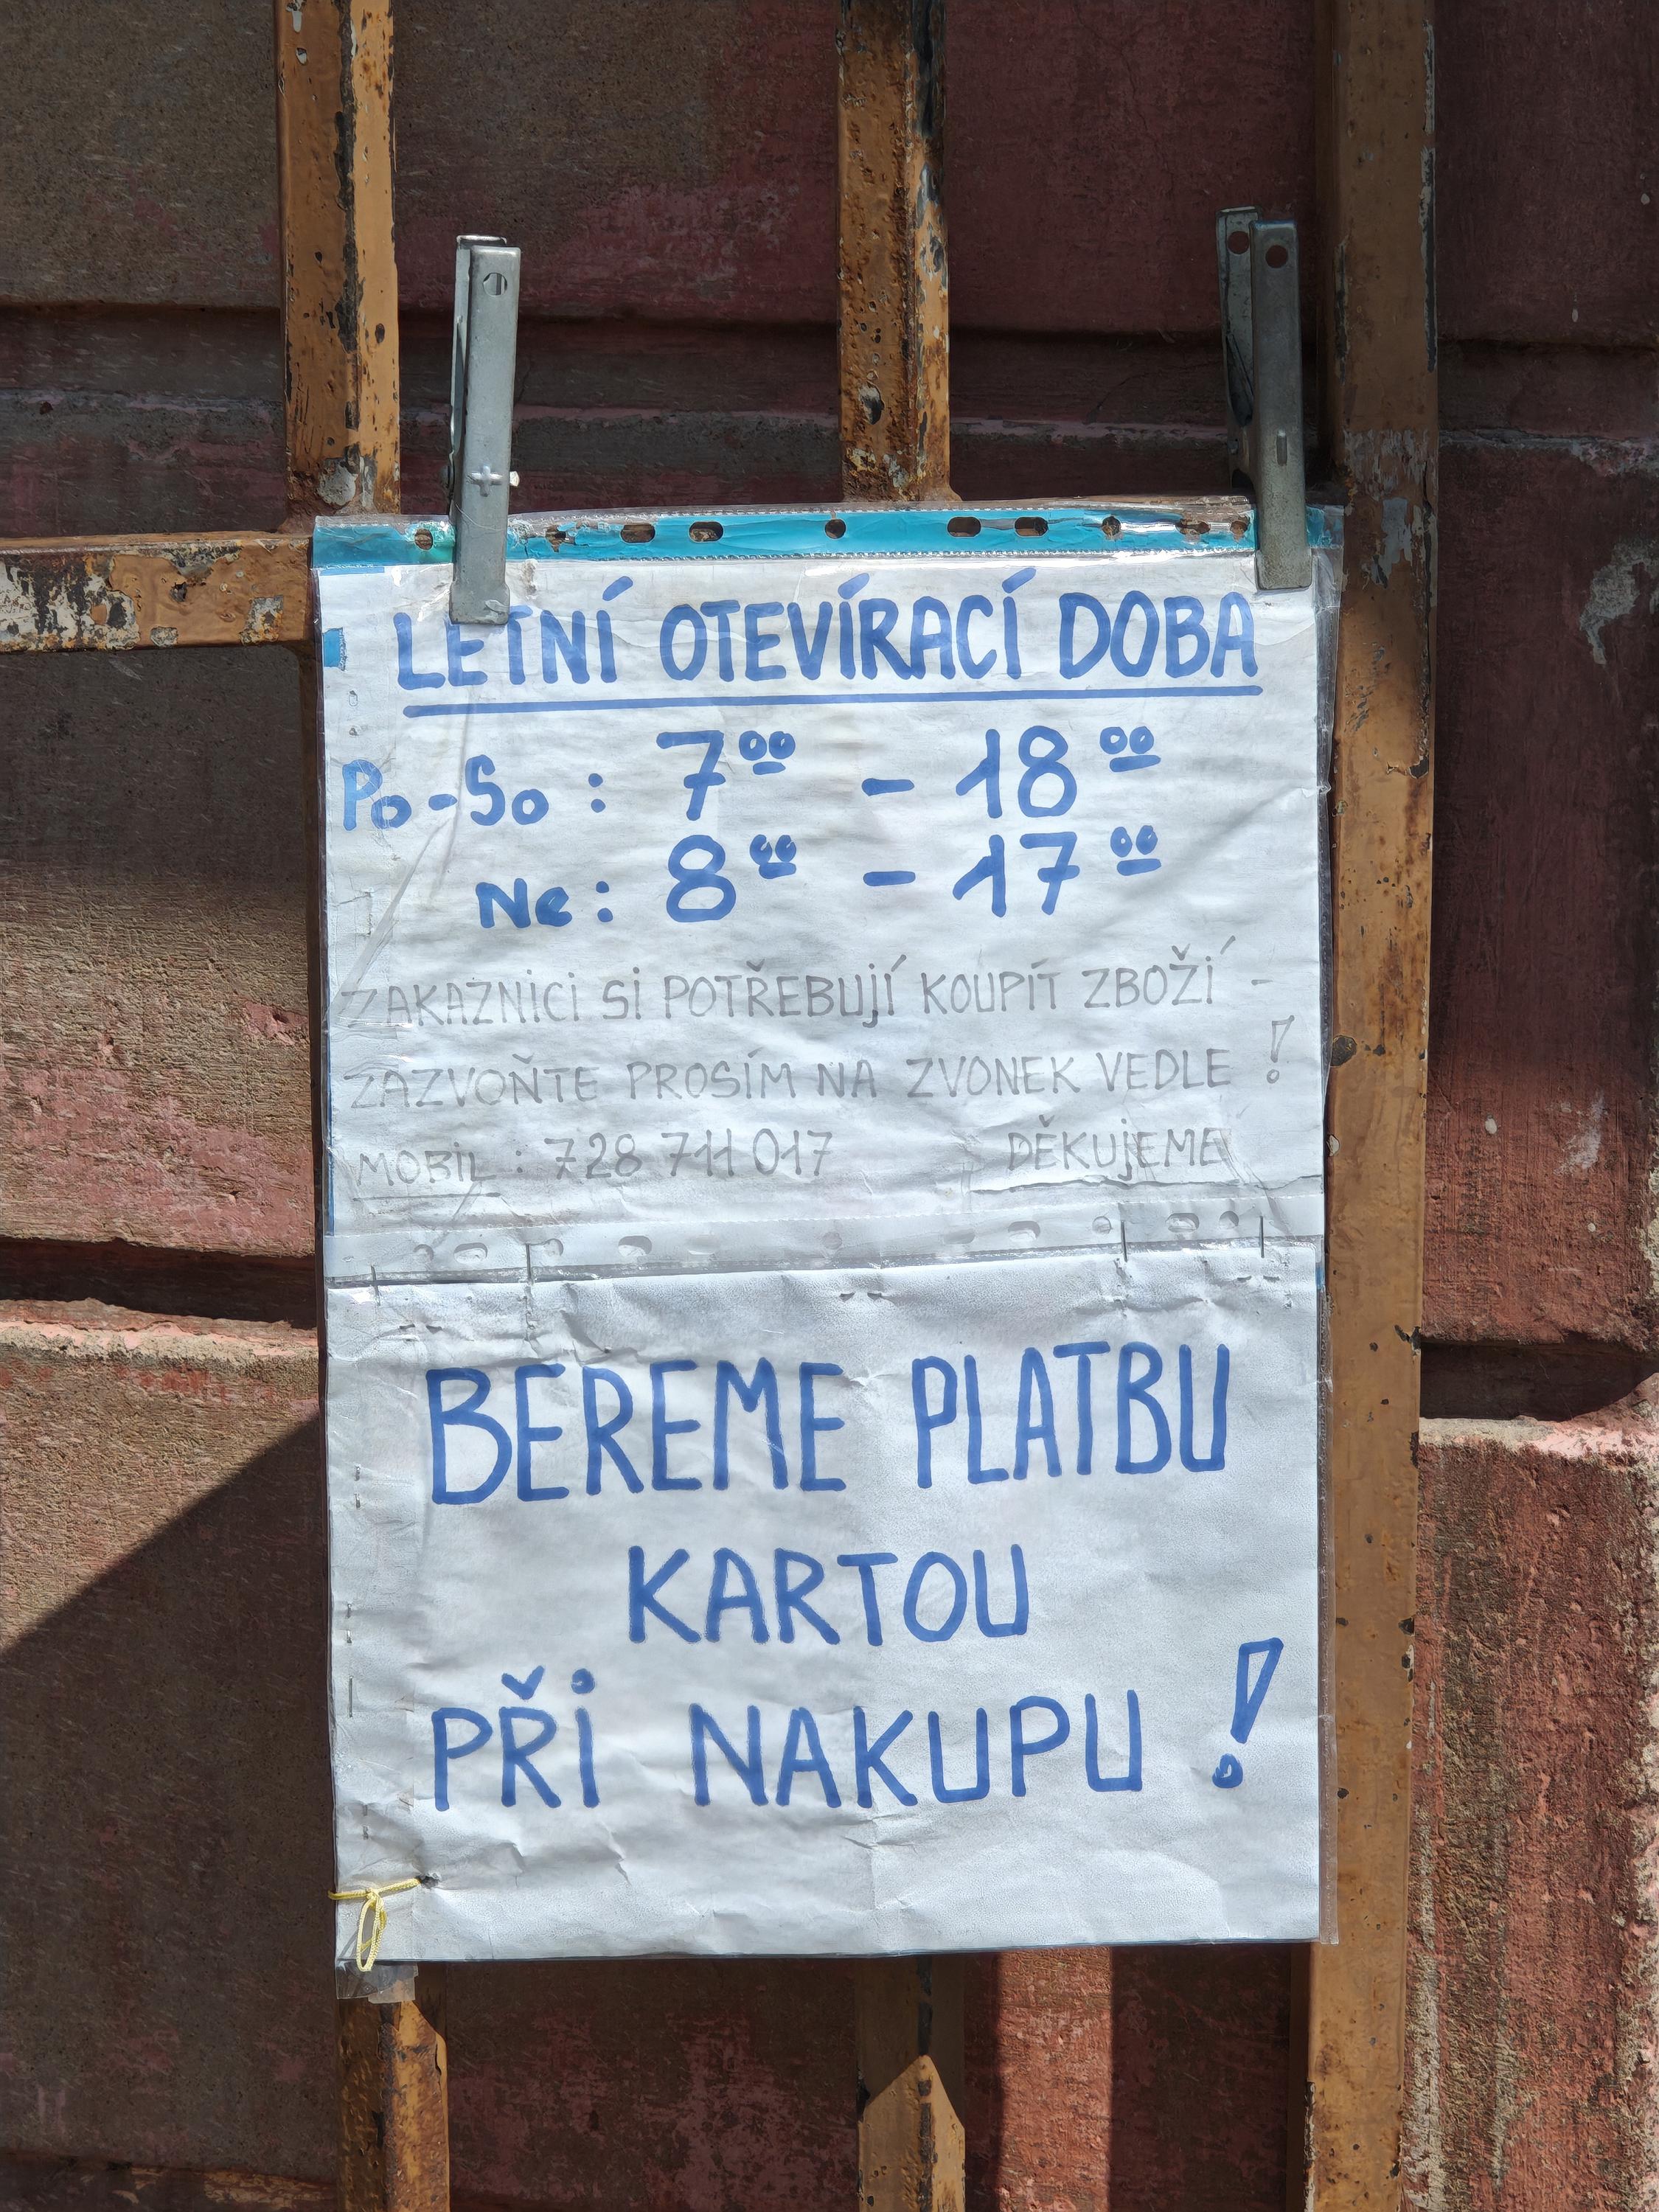 LETNÍ OTEVÍRACÍ DOBA
Po-So: 7⁰⁰ - 18⁰⁰
Ne: 8⁰⁰ - 17⁰⁰
ZAKAZNICI SI POTŘEBUJÍ KOUPIT ZBOŽÍ -
ZAZVOŇTE PROSÍM NA ZVONEK VEDLE !
MOBIL : 728 711 017 DĚKUJEME
BEREME PLATBU
KARTOU
PŘI NAKUPU !